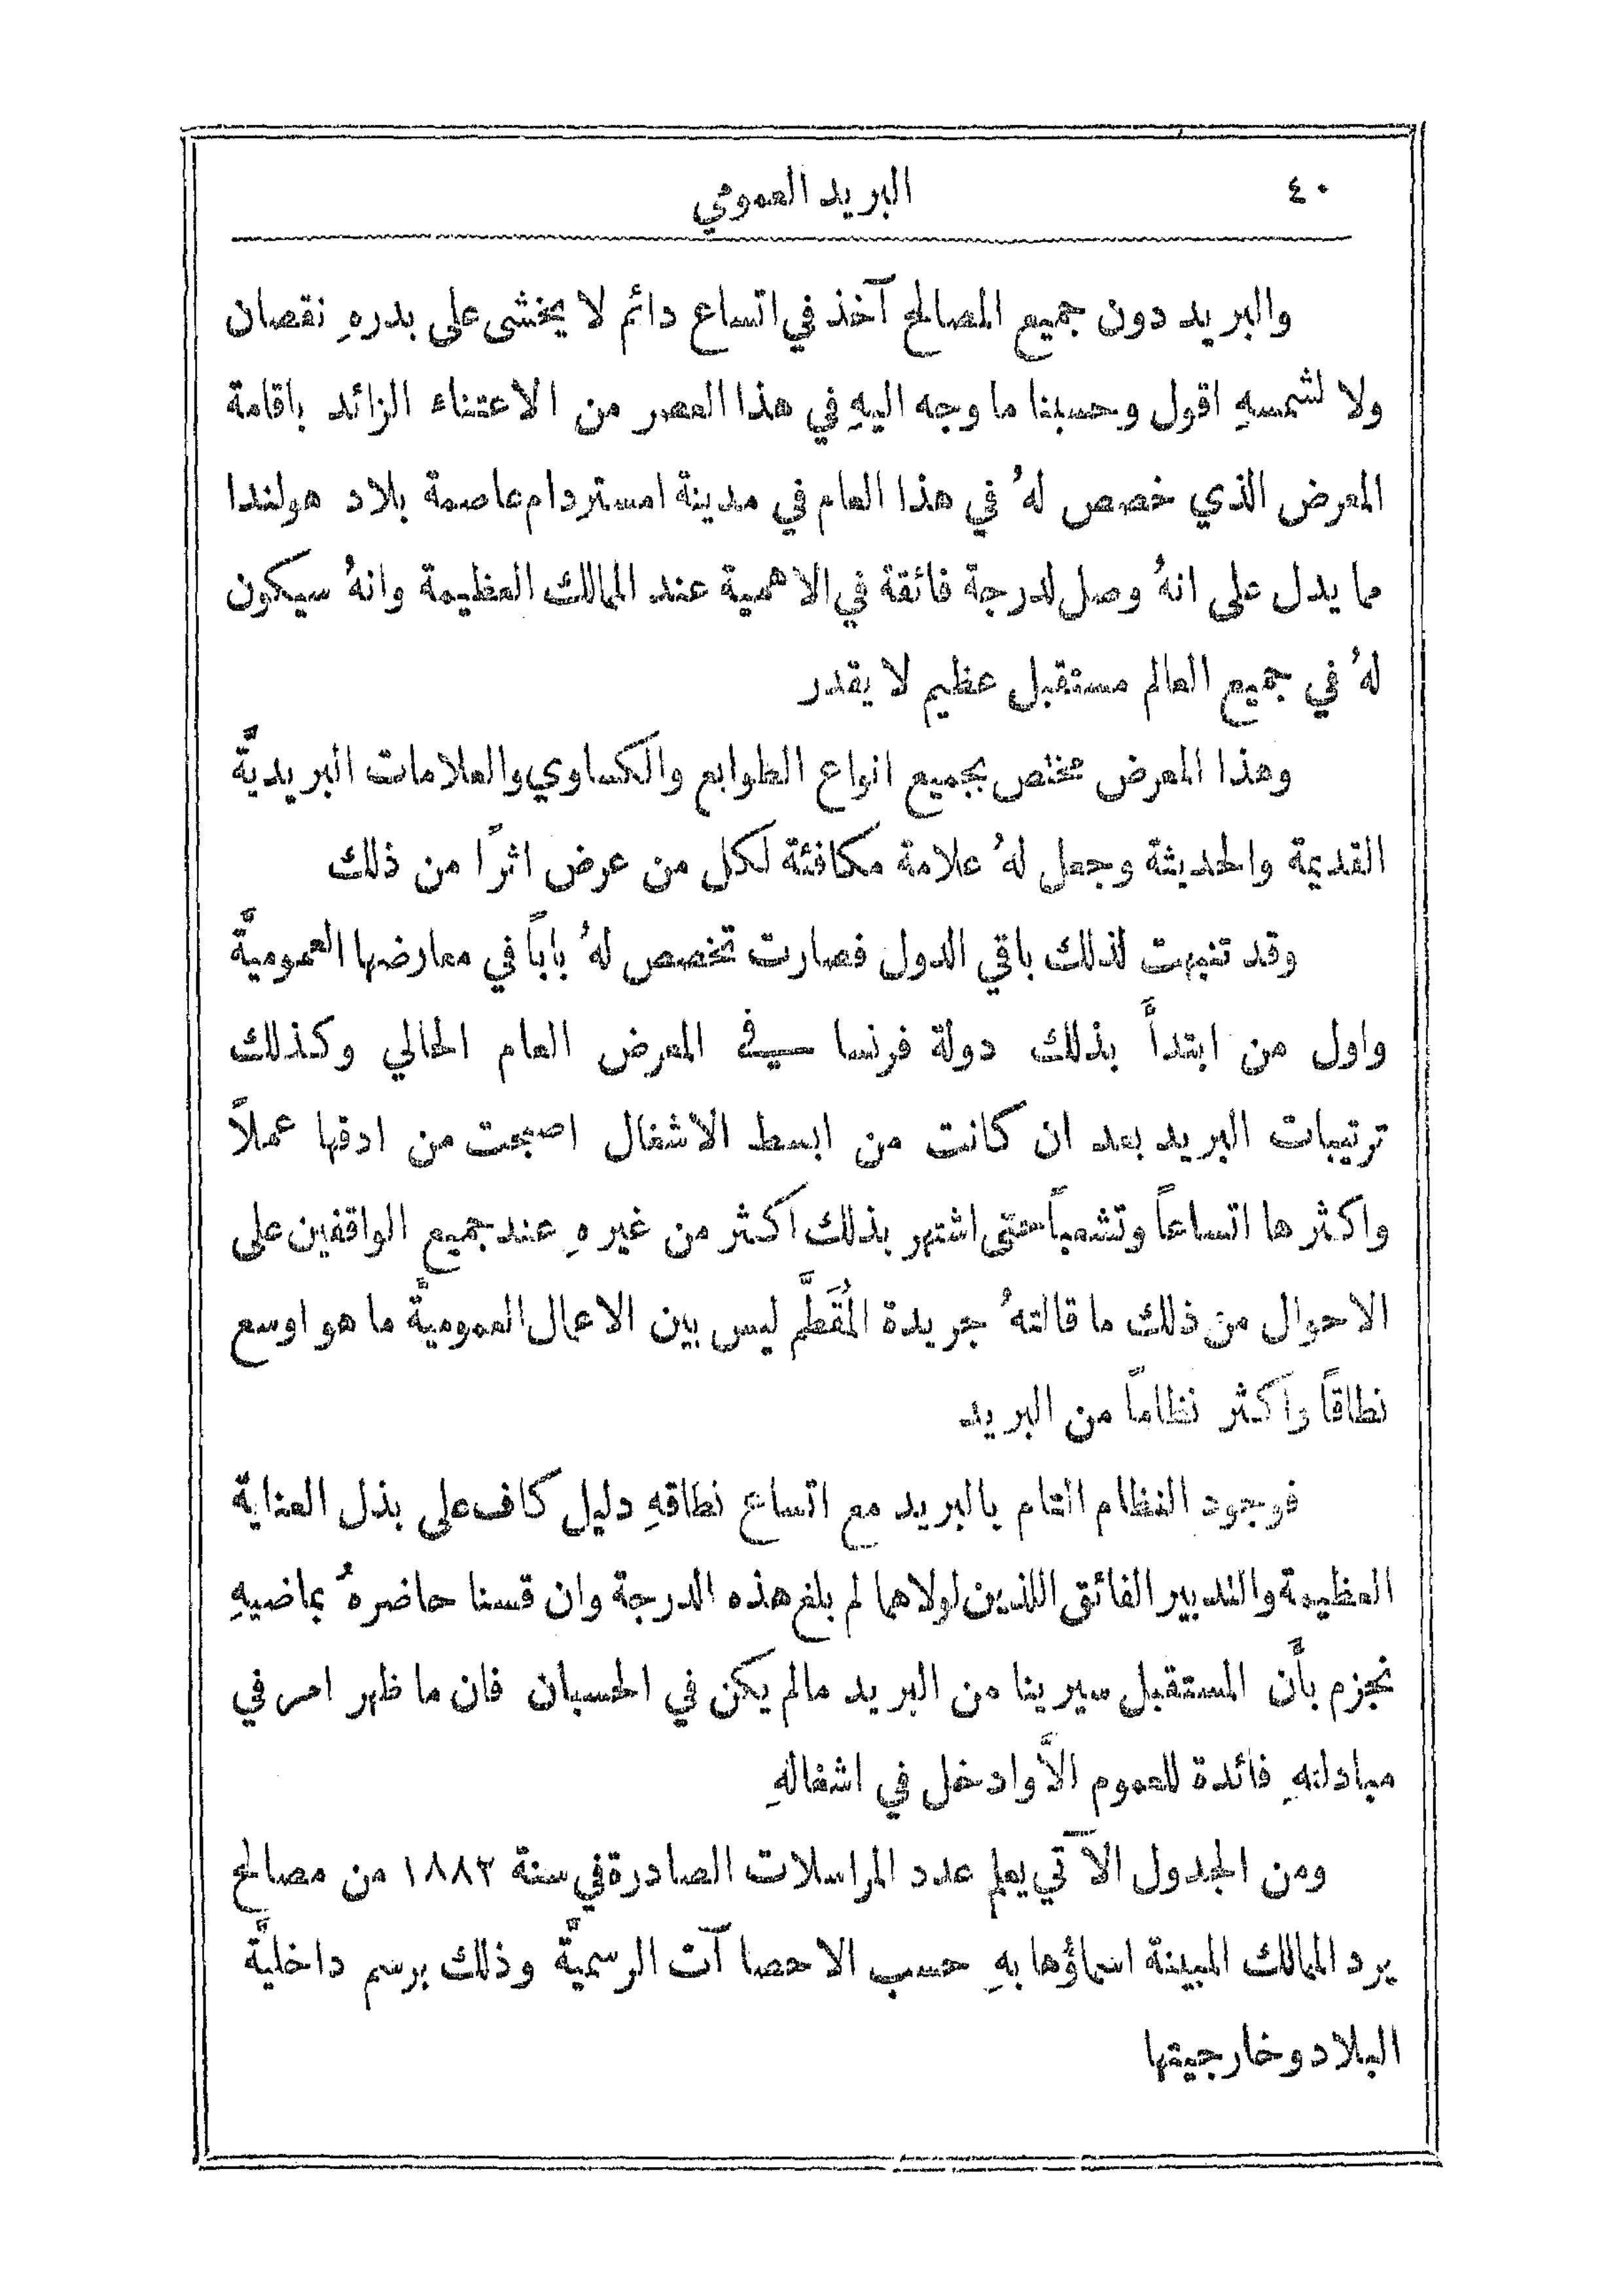 ٤٠ البريد العمومي
والبريد دون جميع المصالح آخذ في اتساع دائم لا يخشى على بدرهِ نقصان
ولا لشمسهِ افول وحسبنا ما وجه اليهِ في هذا العصر من الاعتناء الزائد باقامة
المعرض الذي خصص لهُ في هذا العام في مدينة امستردام عاصمة بلاد هولندا
مما يدل على انهُ وصل لدرجة فائقة في الاهمية عند الممالك العظيمة وانهُ سيكون
لهُ في جميع العالم مستقبل عظيم لا يقدر
وهذا المعرض مختص بجميع انواع الطوابع والكساوي والعلامات البريديَّة
القديمة والحديثة وجعل لهُ علامة مكافئة لكل من عرض اثرًا من ذلك
وقد تنبهت لذلك باقي الدول فصارت تخصص لهُ بابًا في معارضها العموميَّة
واول من ابتدأَ بذلك دولة فرنسا في المعرض العام الحالي وكذلك
ترتيبات البريد بعد ان كانت من ابسط الاشغال اصبحت من ادقها عملاً
واكثرها اتساعاً وتشعباً حتى اشتهر بذلك اكثر من غيرهِ عند جميع الواقفين على
الاحوال من ذلك ما قالتهُ جريدة المُقَطَّم ليس بين الاعمال العموميَّة ما هو اوسع
نطاقاً واكثر نظاماً من البريد
فوجود النظام التام بالبريد مع اتساع نطاقهِ دليل كاف على بذل العناية
العظيمة والتدبير الفائق اللذين لولاهما لم بلغ هذه الدرجة وان قسنا حاضرهُ بماضيهِ
نجزم بأَن المستقبل سيرينا من البريد مالم يكن في الحسبان فان ما ظهر امر في
مبادلتهِ فائدة للعموم الاَّ وادخل في اشغالهِ
ومن الجدول الآتي يعلم عدد المراسلات الصادرة في سنة ١٨٨٢ من مصالح
برد الممالك المبينة اسماؤها بهِ حسب الاحصاآت الرسميَّة وذلك برسم داخليَّة
البلاد وخارجيتها